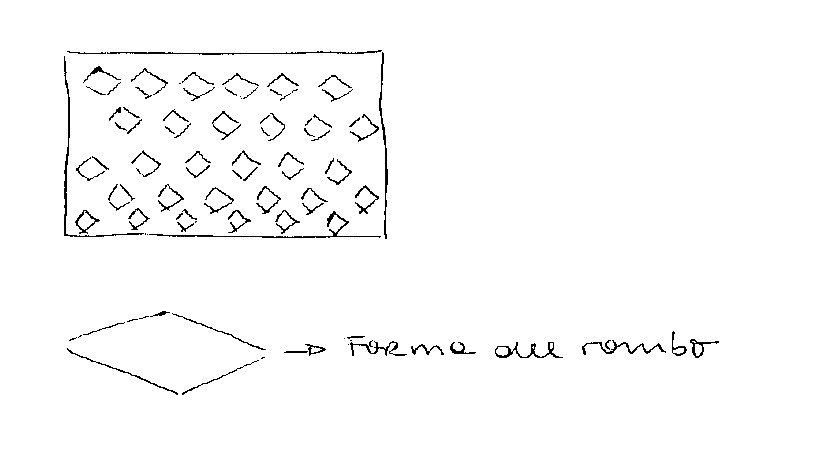 Forma del rombo